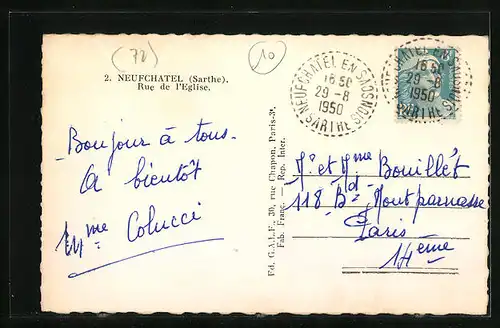 (72)
10
2. NEUFCHATEL (Sarthe).
Rue de l'Eglise.
NEUFCHATEL EN SAOSNOIS
16 50
29 - 8
1950
SARTHE
NEUFCHATEL EN SAOSNOIS
16 50
29 - 8
1950
SARTHE
Bonjour à tous
A bientôt
Mme Colucci
Ed. G.A.L.F., 30, rue Chapon, Paris-3e
Fab. Franç. — Rep. Inter.
Mr et Mme Bouillét
118 Bd Montparnasse
Paris
14ème